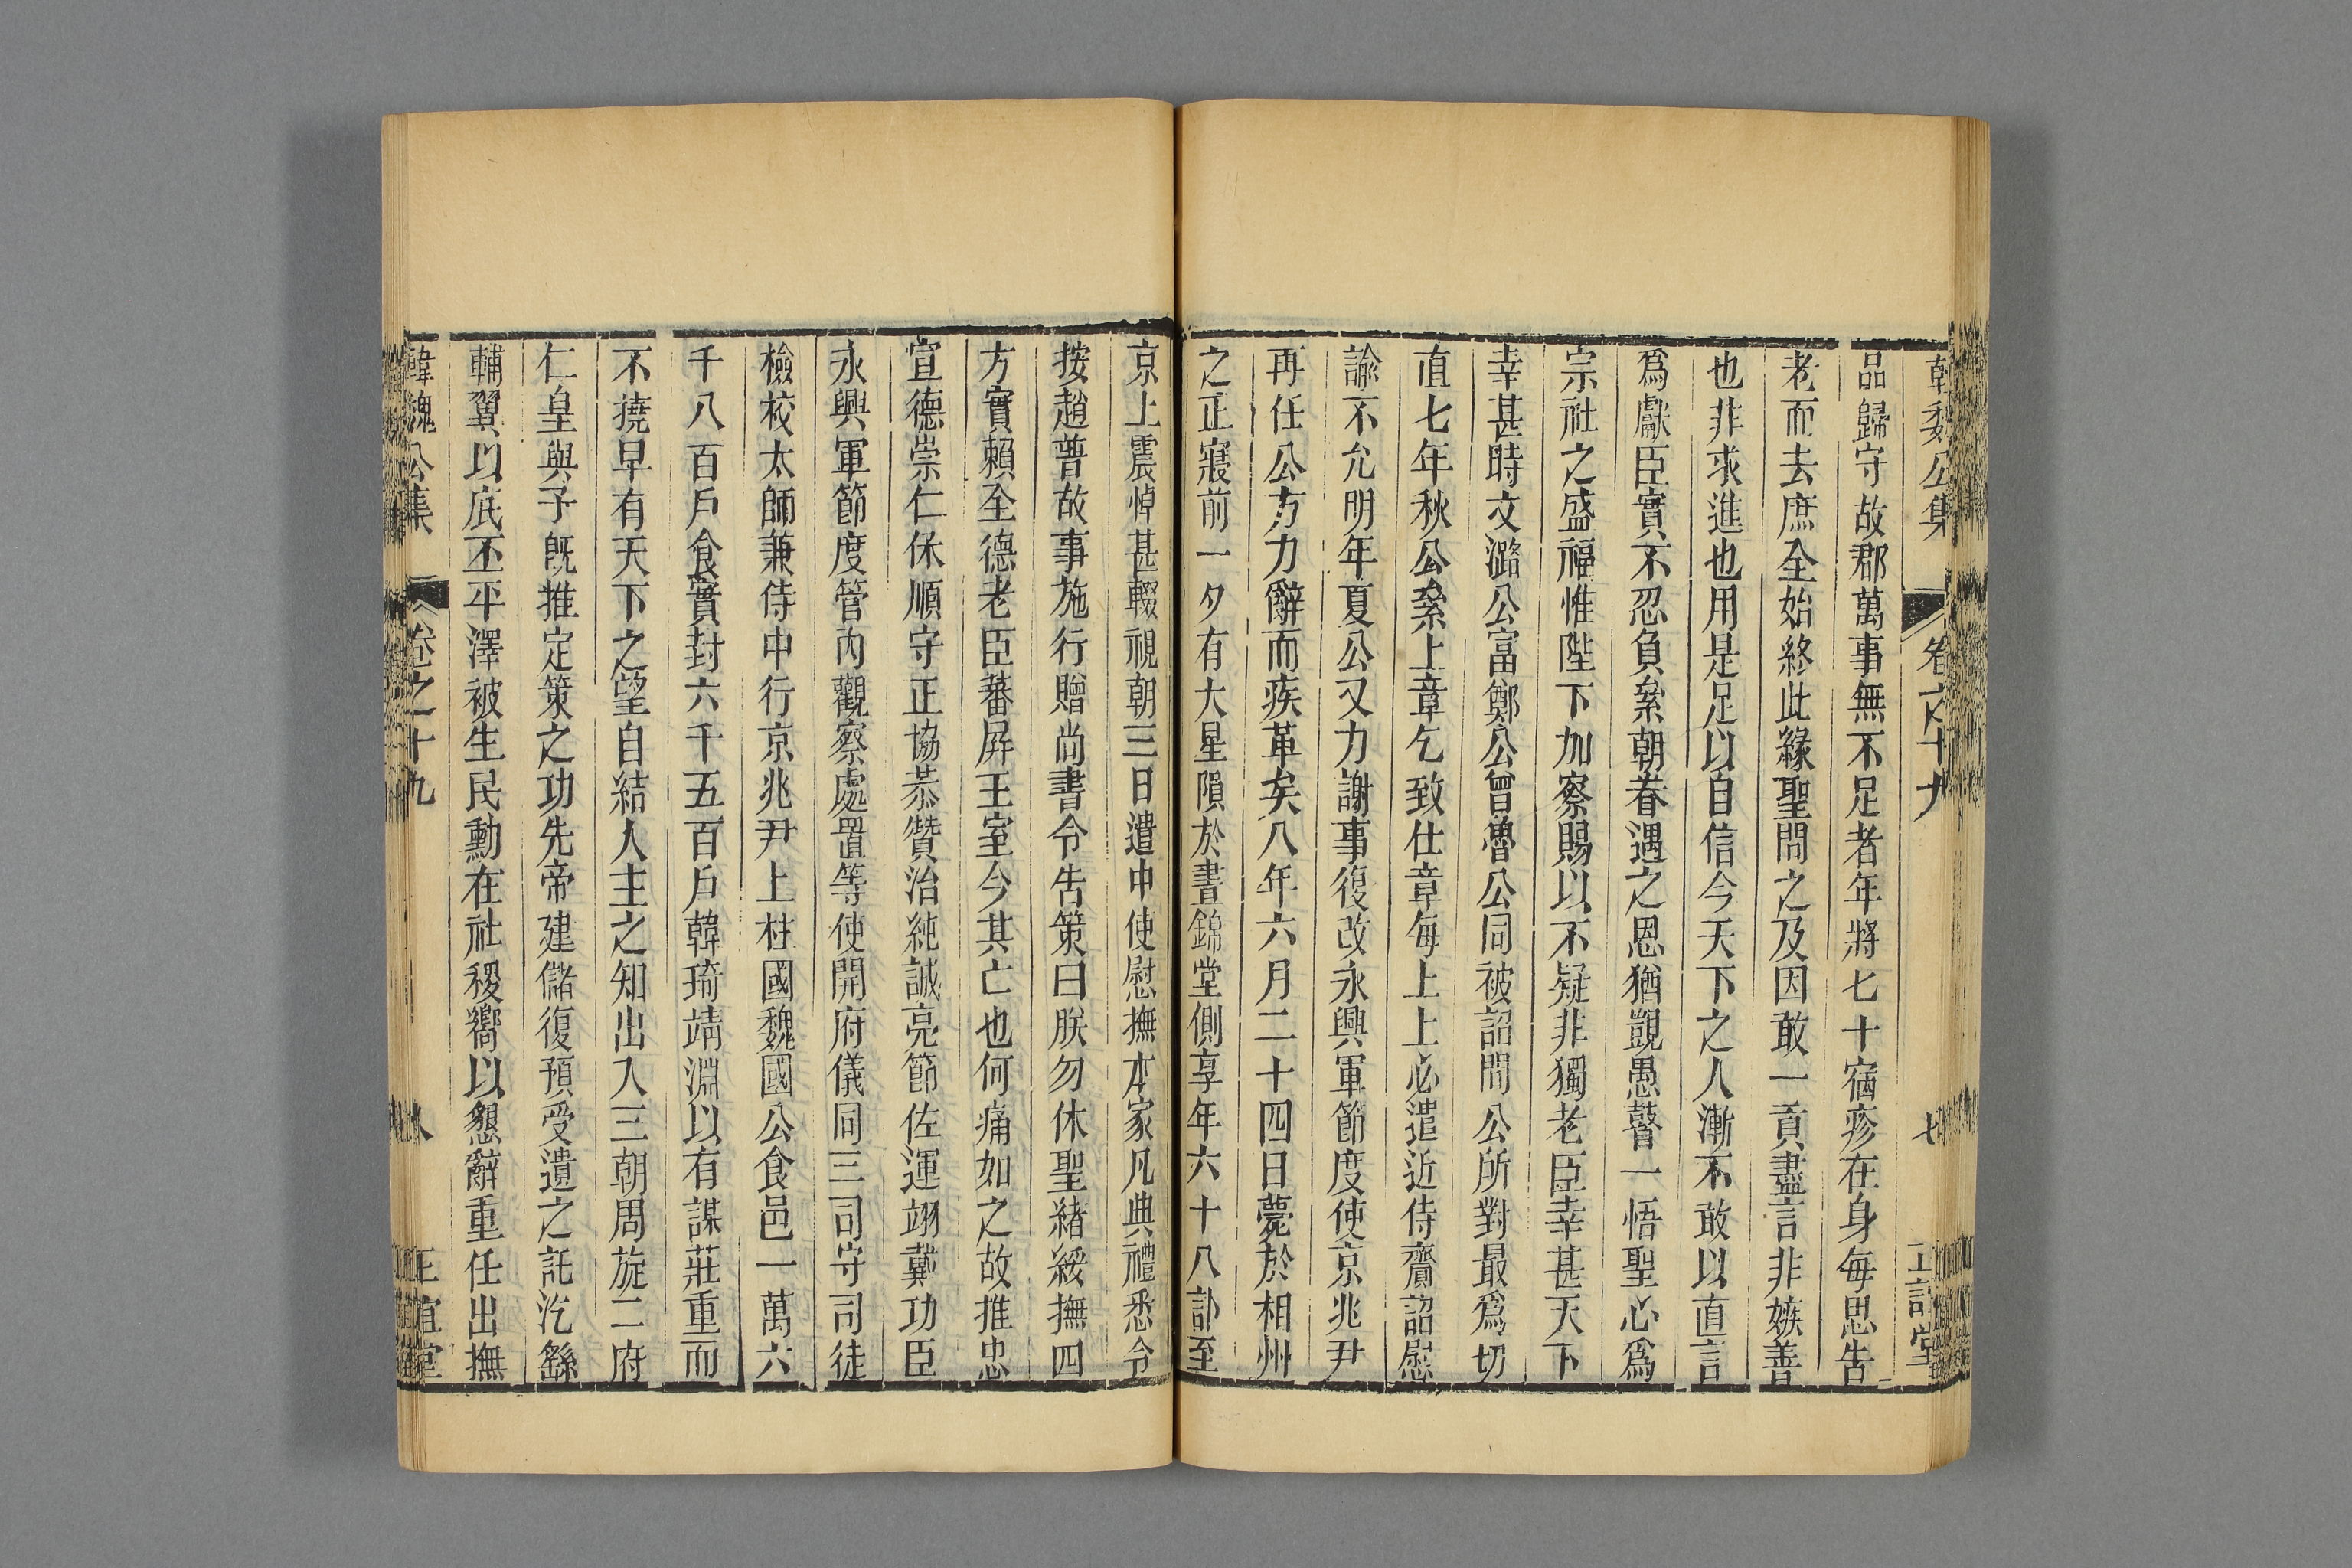 韓魏公集 卷之十九 七 正誼堂
品歸守故郡萬事無不足者年將七十宿疹在身每思告
老而去庶全始終此緣聖問之及因敢一貢盡言非嫉善
也非求進也用是足以自信今天下之人漸不敢以直言
爲獻臣實不忍負絫朝眷遇之恩猶覬愚瞽一悟聖心爲
宗社之盛福惟陛下加察賜以不疑非獨老臣幸甚天下
幸甚時文潞公富鄭公曾魯公同被詔問公所對最爲切
直七年秋公絫上章乞致仕章每上上必遣近侍齎詔慰
諭不允明年夏公又力謝事復改永興軍節度使京兆尹
再任公方力辭而疾革矣八年六月二十四日薨於相州
之正寢前一夕有大星隕於晝錦堂側享年六十八訃至
京上震悼甚輟視朝三日遣中使慰撫本家凡典禮悉令
按趙普故事施行贈尚書令告策曰朕勿休聖緒綏撫四
方實賴全德老臣蕃屏王室今其亡也何痛如之故推忠
宣德崇仁保順守正協恭贊治純誠亮節佐運翊戴功臣
永興軍節度管內觀察處置等使開府儀同三司守司徒
檢校太師兼侍中行京兆尹上柱國魏國公食邑一萬六
千八百戶食實封六千五百戶韓琦靖淵以有謀莊重而
不撓早有天下之望自結人主之知出入三朝周旋二府
仁皇與子旣推定策之功先帝建儲復預受遺之託汔繇
輔翼以底丕平澤被生民勳在社稷嚮以懇辭重任出撫
韓魏公集 卷之十九 八 正誼堂